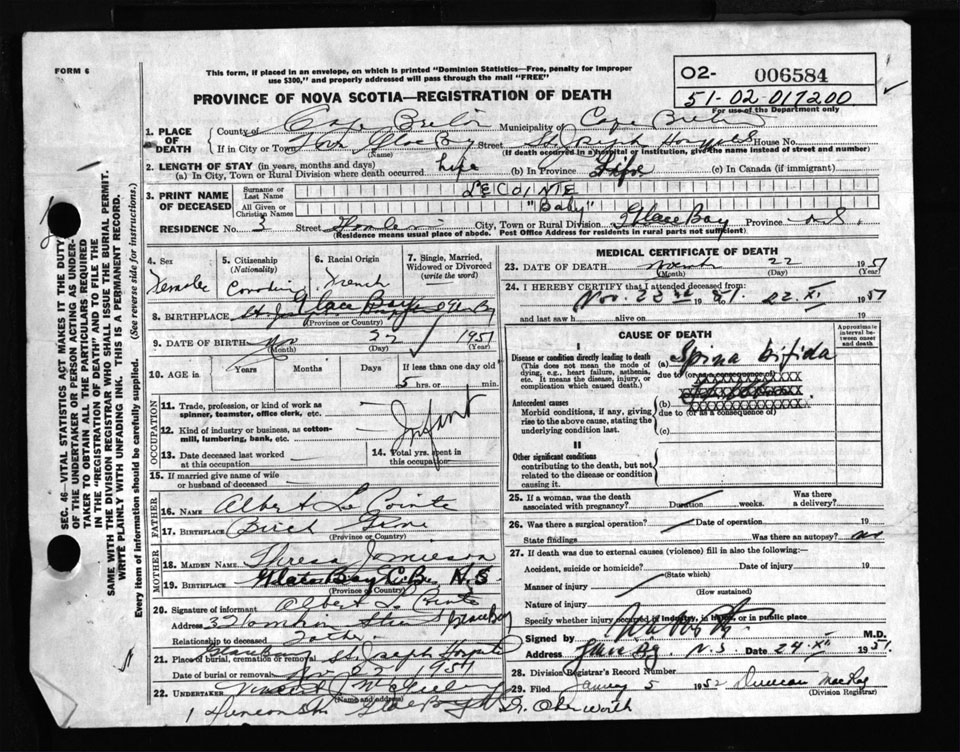 FORM 6
This form, if placed in an envelope, on which is printed "Dominion Statistics—Free, penalty for improper
use $300," and properly addressed will pass through the mail "FREE"
O2- 006584
51-02-017200
For use of the Department only
PROVINCE OF NOVA SCOTIA—REGISTRATION OF DEATH
1. PLACE OF DEATH
County of Cape Breton Municipality of Cape Breton
If in City or Town Glace Bay Street St. Joseph Hospital House No.
(Name) (If death occurred in a hospital or institution, give the name instead of street and number)
2. LENGTH OF STAY (in years, months and days)
(a) In City, Town or Rural Division where death occurred life (b) In Province Life (c) In Canada (if immigrant)
3 PRINT NAME OF DECEASED
Surname or Last Name LECOINTE
All Given or Christian Names "Baby"
RESIDENCE No. 3 Street City, Town or Rural Division Glace Bay Province N.S.
(Residence means usual place of abode. Post Office Address for residents in rural parts not sufficient)
4. Sex Female
5. Citizenship (Nationality) Canadian
6. Racial Origin French
7. Single, Married, Widowed or Divorced (write the word)
8. BIRTHPLACE Glace Bay
(Province or Country)
9. DATE OF BIRTH Nov 22 1951
(Month) (Day) (Year)
10. AGE Years Months Days If less than one day old
5 hrs. or min.
OCCUPATION
11. Trade, profession, or kind of work as spinner, teamster, office clerk, etc.
Infant
12. Kind of industry or business, as cotton-mill, lumbering, bank, etc.
13. Date deceased last worked at this occupation
14. Total yrs. spent in this occupation
15. If married give name of wife or husband of deceased
FATHER
16. NAME Albert Le Cointe
17. BIRTHPLACE Birch Grove
(Province or Country)
MOTHER
18. MAIDEN NAME Theresa Jamieson
19. BIRTHPLACE Glace Bay C.B. N.S.
(Province or Country)
20. Signature of informant Albert Le Cointe
Address 3 Glace Bay
Relationship to deceased Father
21. Place of burial, cremation or removal St. Joseph Hospital
Date of burial or removal Nov 1951
22. UNDERTAKER Vincent J.
(Name and address)
Glace Bay
MEDICAL CERTIFICATE OF DEATH
23. DATE OF DEATH 22 1951
(Month) (Day) (Year)
24. I HEREBY CERTIFY that I attended deceased from:
Nov. 22nd 1951 22.XI 1951
and last saw h alive on 19
CAUSE OF DEATH
Approximate interval between onset and death
I
Disease or condition directly leading to death
(This does not mean the mode of dying, e.g., heart failure, asthenia, etc. It means the disease, injury, or complication which caused death.)
(a) Spina bifida
due to (or as a consequence of)
Antecedent causes
Morbid conditions, if any, giving rise to the above cause, stating the underlying condition last.
(b)
due to (or as a consequence of)
(c)
II
Other significant conditions
contributing to the death, but not related to the disease or condition causing it.
25. If a woman, was the death associated with pregnancy? Duration weeks. Was there a delivery?
26. Was there a surgical operation? Date of operation 19
State findings Was there an autopsy? no
27. If death was due to external causes (violence) fill in also the following:—
Accident, suicide or homicide? Date 19
(State which)
Manner of injury
(How sustained)
Nature of injury
Specify whether injury occurred in industry, in home, or in public place
Signed by M.D.
Address Glace Bay N.S. Date 24.XI 1951
28. Division Registrar's Record Number
29. Filed January 5 1952 Duncan MacRae
(Division Registrar)
SEC. 46—VITAL STATISTICS ACT MAKES IT THE DUTY
OF THE UNDERTAKER OR PERSON ACTING AS UNDER-
TAKER TO OBTAIN ALL THE PARTICULARS REQUIRED
IN THE "REGISTRATION OF DEATH" AND TO FILE THE
SAME WITH THE DIVISION REGISTRAR WHO SHALL ISSUE THE BURIAL PERMIT.
WRITE PLAINLY WITH UNFADING INK. THIS IS A PERMANENT RECORD.
Every item of information should be carefully supplied. (See reverse side for instructions.)